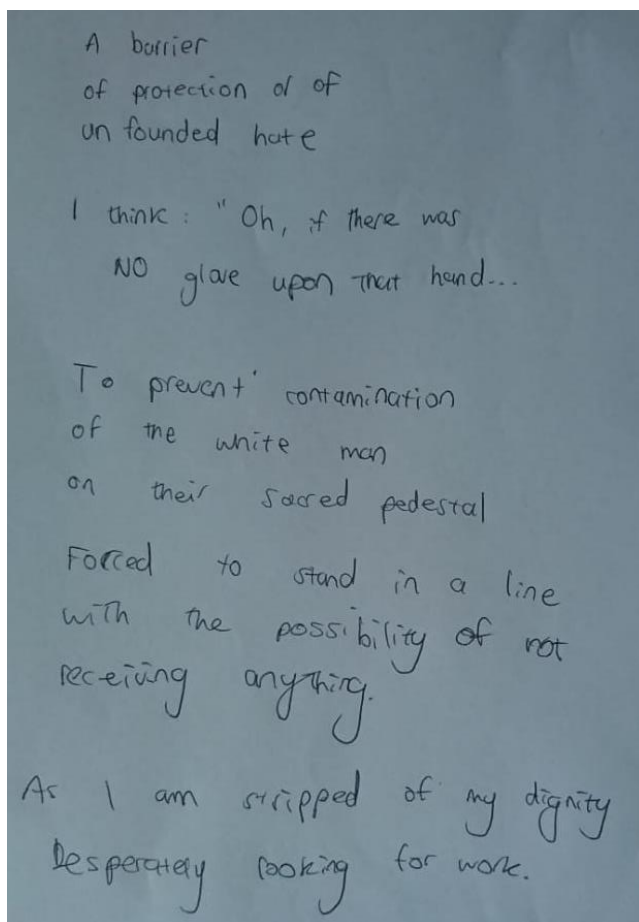 A barrier
of protection or of
un founded hate
I think : " Oh, if there was
NO glove upon that hand...
To prevent contamination
of the white man
on their sacred pedestal
Forced to stand in a line
with the possibility of not
receiving anything.
As I am stripped of my dignity
Desperately looking for work.